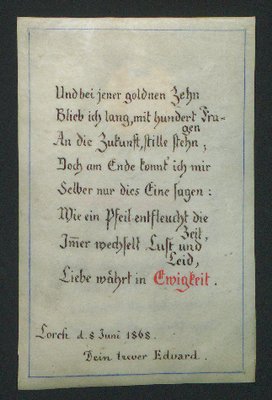 Und bei jener goldnen Zehn
Blieb ich lang, mit hundert Fra-
gen
An die Zukunft, stille stehn;
Doch am Ende konnt ich mir
Selber nur dies Eine sagen:
Wie ein Pfeil entfleucht die
Zeit,
Immer wechselt Lust und
Leid,
Liebe währt in Ewigkeit.
Lorch d. 8 Juni 1868.
Dein treuer Eduard.